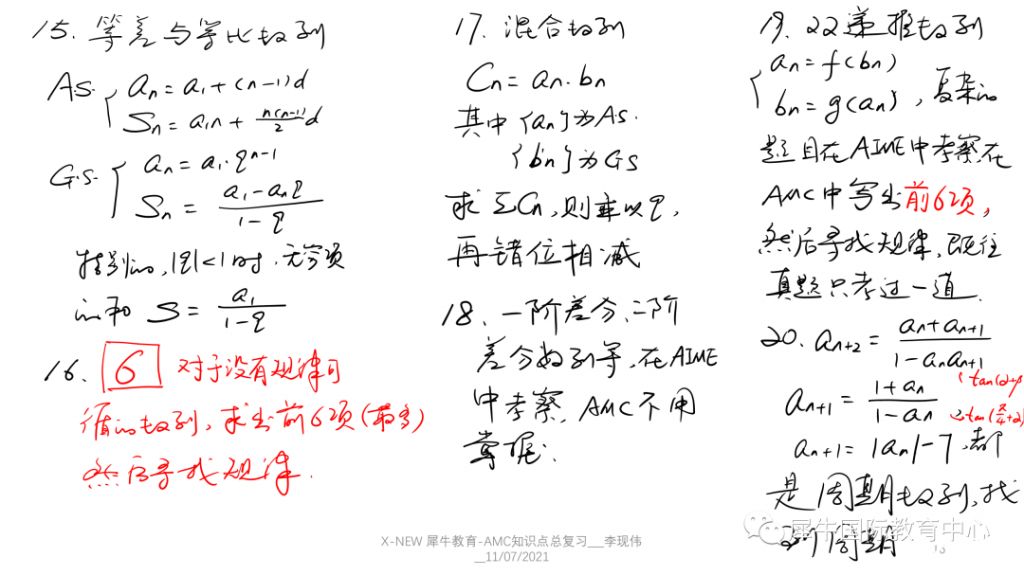 15. 等差与等比数列
A.S. { an = a1 + (n-1)d
Sn = a1n + n(n-1)/2 d
G.S. { an = a1·q^(n-1)
Sn = (a1-anq)/(1-q)
特别的, |q|<1时, 无穷项
的和 S = a1/(1-q)
16. 6 对于没有规律可
循的数列, 求出前6项(最多)
然后寻找规律.
17. 混合数列
Cn = an·bn
其中{an}为As.
{bn}为GS
求ΣCn, 则乘以q,
再错位相减
18. 一阶差分, 二阶
差分数列等, 在AIME
中考察, AMC不用
掌握.
19. 双递推数列
{ an = f(bn)
bn = g(an), 复杂的
题目在AIME中考察, 在
AMC中写出前6项,
然后寻找规律, 既往
真题只考过一道.
20. an+2 = (an+an+1)/(1-anan+1)
tan(α+β)
an+1 = (1+an)/(1-an)
tan(π/4+α)
an+1 = |an|-7, 都
是周期数列, 找
到周期
犀牛国际教育中心
X-NEW 犀牛教育-AMC知识点总复习__李现伟
__11/07/2021